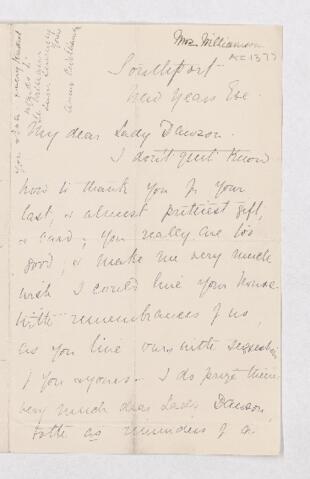 Mrs. Williamson
AC 1377
Southport
New Years Eve.
My dear Lady Dawson.
I don't quit know
how to thank you for your
last, & almost prettiest gift,
& card; you really are too
good; & make me very much
wish I could line your house
with remembrances of us,
as you line ours with
of you & yours. I do prize them
very much dear Lady Dawson,
both as reminders of a
you & Sir
regards to
yours
Anna Williamson